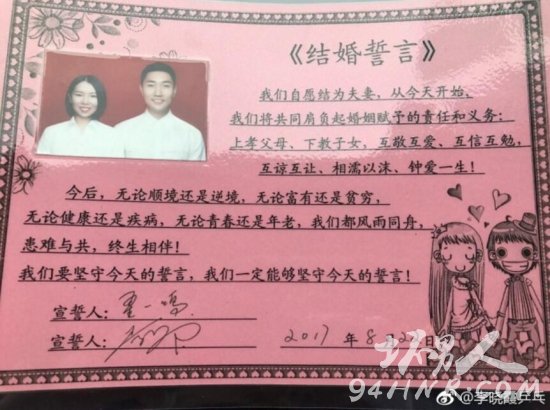 《结婚誓言》
我们自愿结为夫妻，从今天开始，
我们将共同肩负起婚姻赋予的责任和义务：
上孝父母、下教子女，互敬互爱、互信互勉，
互谅互让、相濡以沫、钟爱一生！
今后，无论顺境还是逆境，无论富有还是贫穷，
无论健康还是疾病，无论青春还是年老，我们都风雨同舟，
患难与共，终生相伴！
我们要坚守今天的誓言，我们一定能够坚守今天的誓言！
宣誓人：翟一鸣
宣誓人：
2017 年 8 月 2 日
坏男人
94HNR.com
@李晓霞乒乓